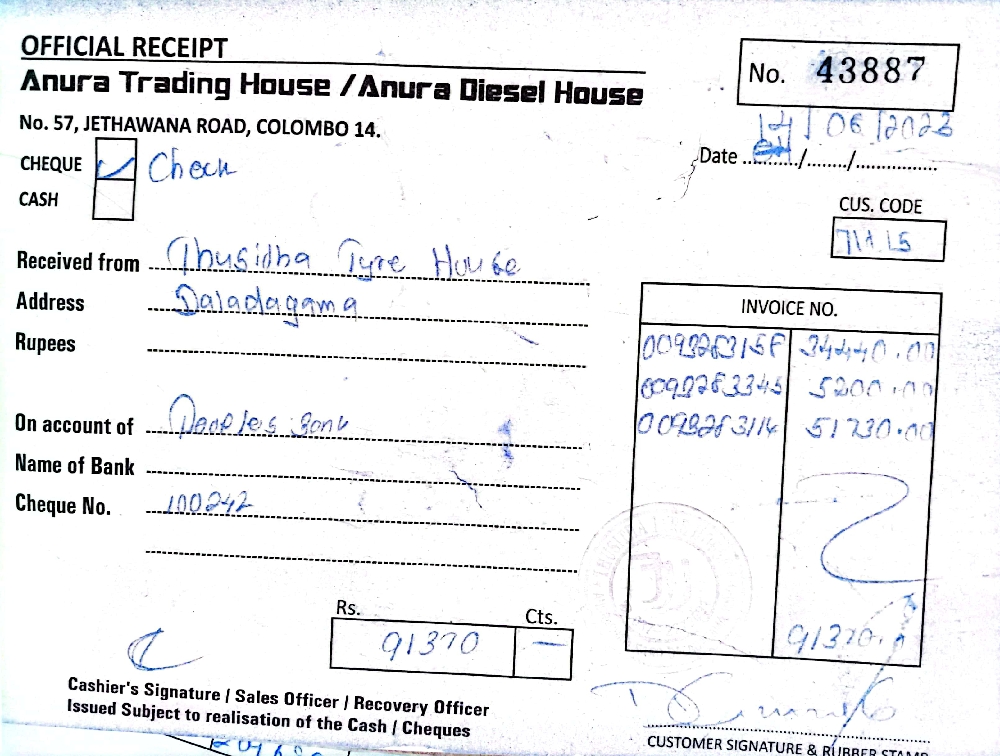 OFFICIAL RECEIPT
Anura Trading House / Anura Diesel House
No. 43887
No. 57, JETHAWANA ROAD, COLOMBO 14.
Date 14/06/2023
CHEQUE Check
CASH
CUS. CODE
Received from Thusidha Tyre House
Address Daladagama
Rupees
INVOICE NO.
34440.00
5200.00
51730.00
On account of Peoples Bank
Name of Bank
Cheque No. 100242
Rs. Cts.
91370 —
91370.
Cashier's Signature / Sales Officer / Recovery Officer
Issued Subject to realisation of the Cash / Cheques
CUSTOMER SIGNATURE & RUBBER STAMP